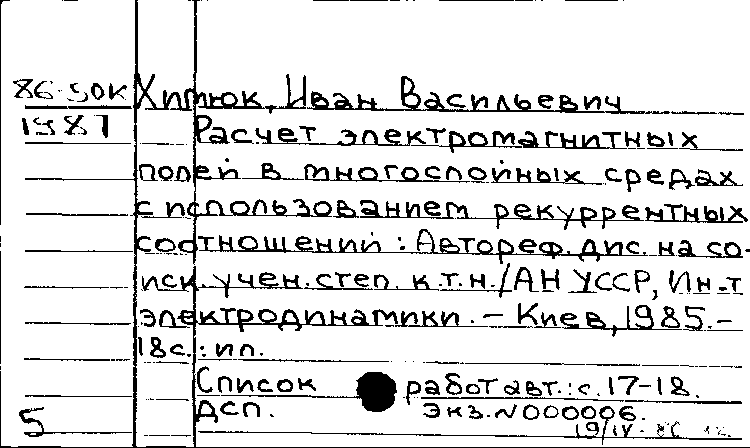 86-50к Химюк, Иван Васильевич
1987 Расчет электромагнитных
полей в многослойных средах
с использованием рекуррентных
соотношений : Автореф. дис. на со-
иск. учен. степ. к.т.н./АН УССР, Ин-т
электродинамики. – Киев, 1985. –
18с. : ил.
Список работ авт.: с. 17-18.
ДСП. Экз. N000006.
5